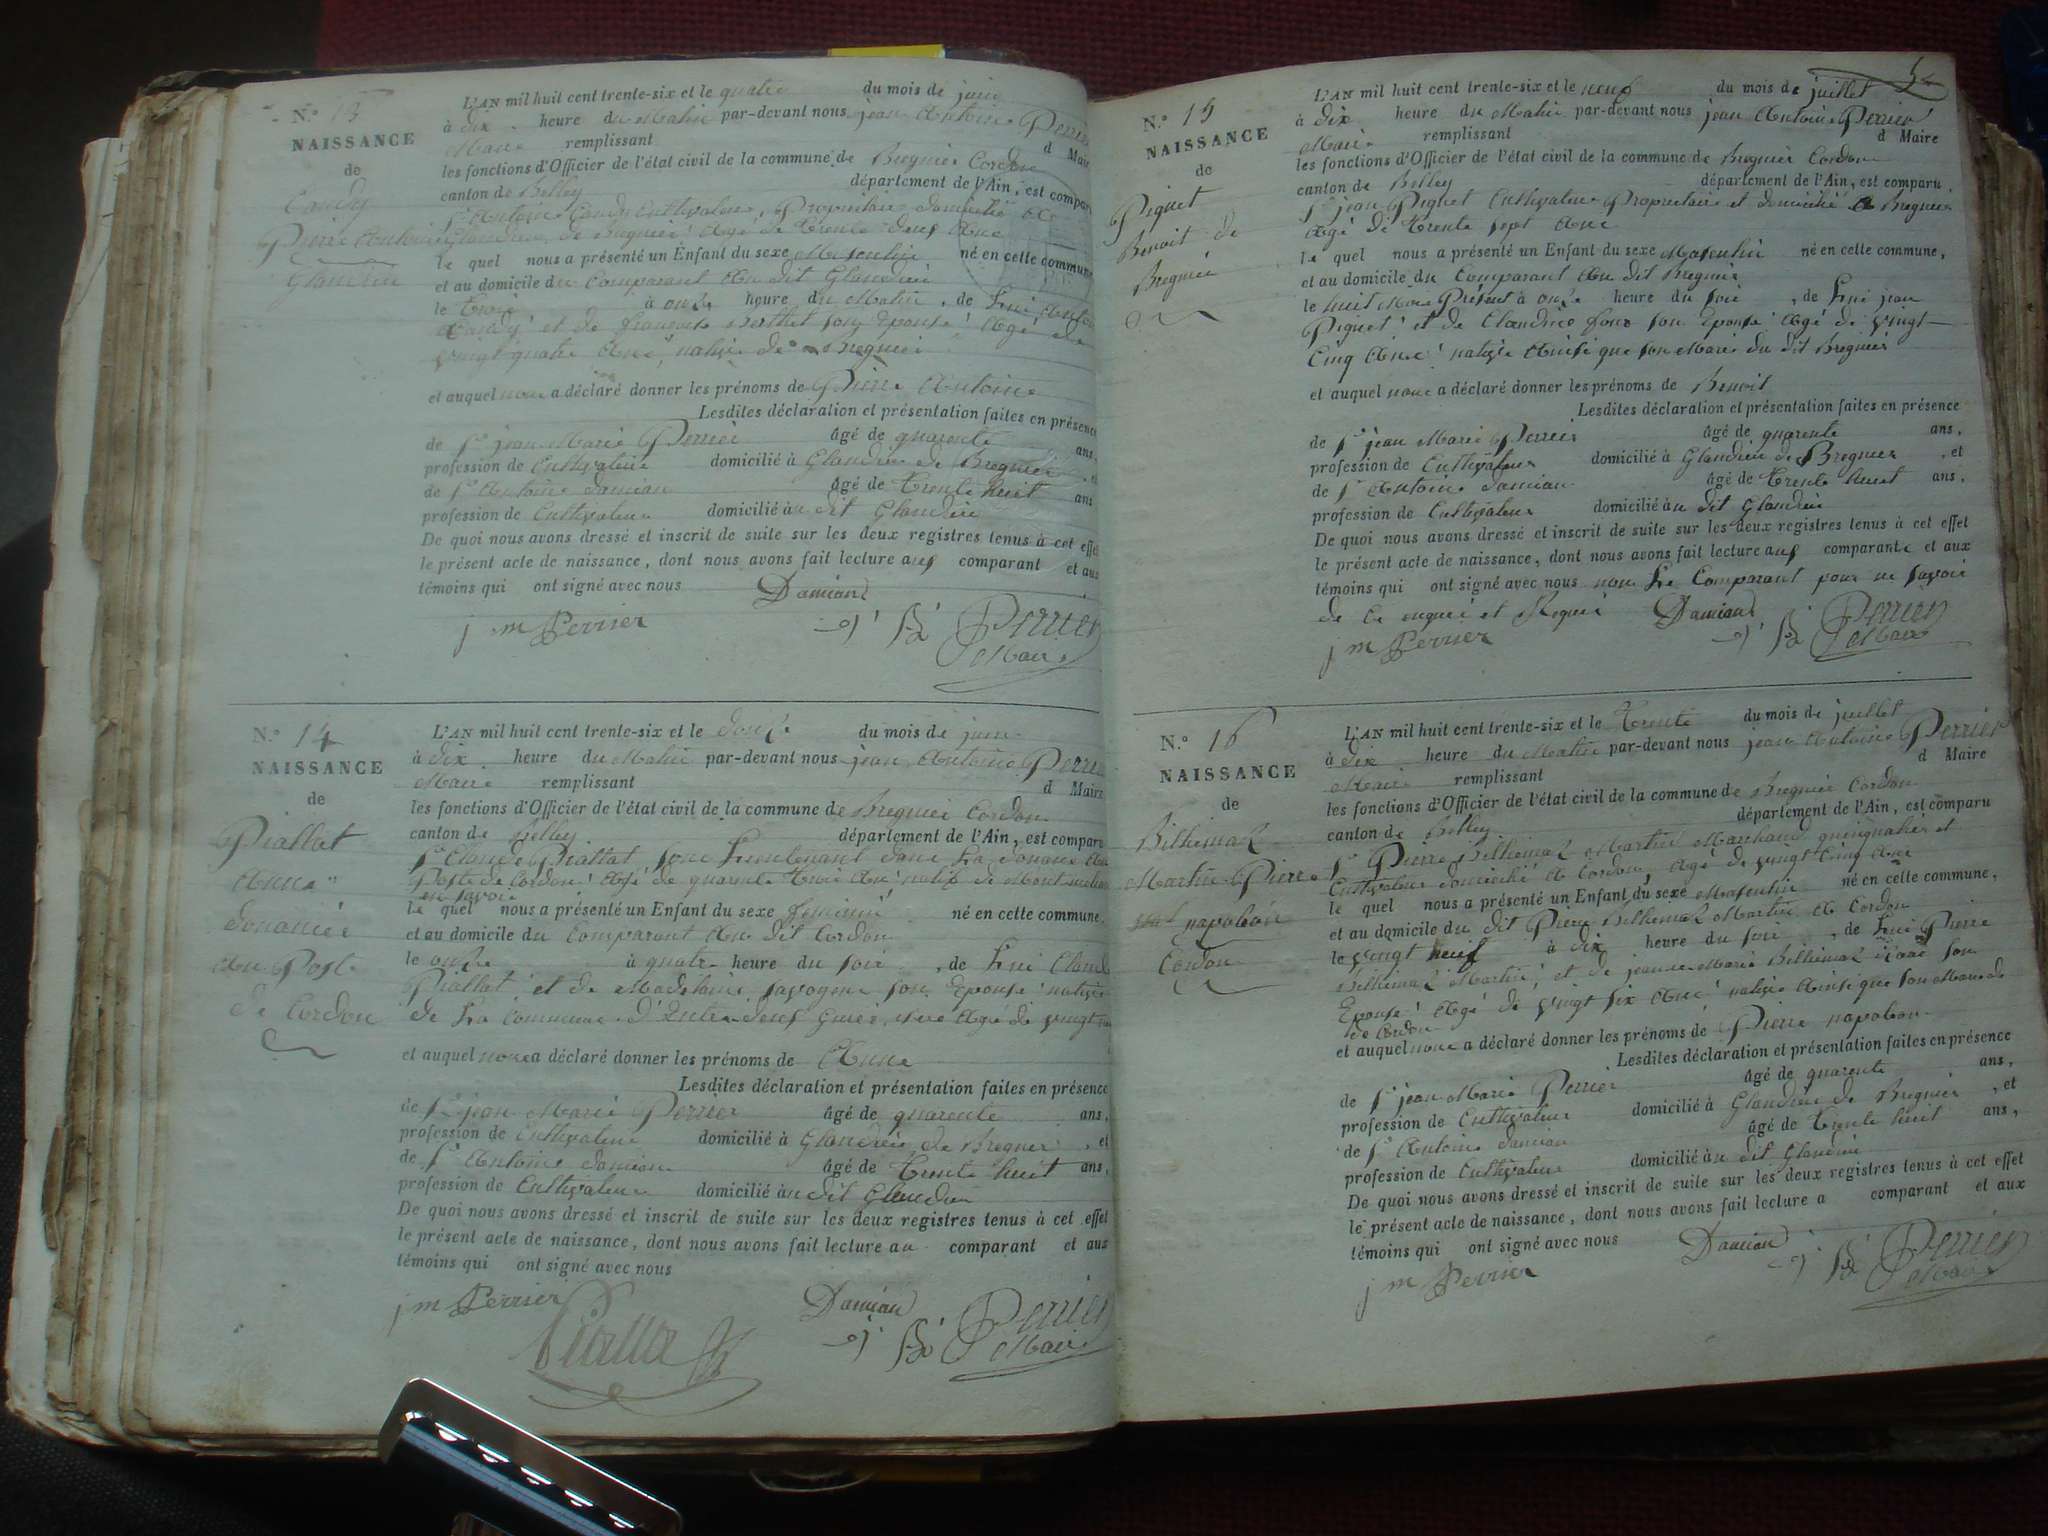 N.° 13
NAISSANCE
de
Candy
Pierre Antoine
Glandieu
L'AN mil huit cent trente-six et le quatre du mois de juin
à dix heure du Matin par-devant nous jean Antoine Perrier
Maire remplissant d Maire
les fonctions d'Officier de l'état civil de la commune de Bregnier Cordon
canton de Belley département de l'Ain, est comparu
Sr Antoine Candy Cultivateur, Propriétaire domicilié à
Glandieu de Bregnier! Agé de trente deux Ans
le quel nous a présenté un Enfant du sexe Masculin né en cette commune
et au domicile du Comparant Au dit Glandieu
le trois à onze heure du Matin, de Lui Antoine
Candy! et de françoise Berthet son Epouse! Agé de
vingt quatre Ans, native de Bregnier
et auquel nous a déclaré donner les prénoms de Pierre Antoine
Lesdites déclaration et présentation faites en présence
de Sr jean Marie Perrier âgé de quarente ans,
profession de Cultivateur domicilié à Glandieu de Bregnier, et
de Sr Antoine Damian âgé de trente huit ans
profession de Cultivateur domicilié au dit Glandieu
De quoi nous avons dressé et inscrit de suite sur les deux registres tenus à cet effet
le présent acte de naissance, dont nous avons fait lecture aux comparant et aux
témoins qui ont signé avec nous
Damian
j m Perrier
Perrier
Maire
N.° 14
NAISSANCE
de
Piallat
Anne
Douanier
au Poste
de Cordon
L'AN mil huit cent trente-six et le douze du mois de juin
à dix heure du Matin par-devant nous jean Antoine Perrier
Maire remplissant d Maire
les fonctions d'Officier de l'état civil de la commune de Bregnier Cordon
canton de Belley département de l'Ain, est comparu
Sr Claude Piallat, sous Lieutenant dans La douane Au
Poste de Cordon! Agé de quarente trois Ans! natif de Montmelian
en savoie
le quel nous a présenté un Enfant du sexe feminin né en cette commune.
et au domicile du Comparant Au dit Cordon
le onze à quatre heure du soir, de Lui Claude
Piallat! et de Madelaine savoyen son Epouse! native
de La Commune d'Entre deux Guier, isere Agé de vingt
et auquel nous a déclaré donner les prénoms de Anne
Lesdites déclaration et présentation faites en présence
de Sr jean Marie Perrier âgé de quarente ans,
profession de Cultivateur domicilié à Glandieu de Bregnier, et
de Sr Antoine Damian âgé de trente huit ans,
profession de Cultivateur domicilié au dit Glandieu
De quoi nous avons dressé et inscrit de suite sur les deux registres tenus à cet effet
le présent acte de naissance, dont nous avons fait lecture au comparant et aux
témoins qui ont signé avec nous
j m Perrier
Damian
Perrier
Piallat
Maire
5
N.° 15
NAISSANCE
de
Piquet
Benoit de
Bregnier
L'AN mil huit cent trente-six et le neuf du mois de juillet
à dix heure du Matin par-devant nous jean Antoine Perrier
Maire remplissant d Maire
les fonctions d'Officier de l'état civil de la commune de Bregnier Cordon
canton de Belley département de l'Ain, est comparu
Sr jean Piquet Cultivateur Propriétaire et domicilié à Bregnier
Agé de trente sept Ans
le quel nous a présenté un Enfant du sexe Masculin né en cette commune,
et au domicile du Comparant Au dit Bregnier
le huit Mois Présent à onze heure du soir, de Lui jean
Piquet! et de Claudine son Epouse! Agé de vingt
Cinq Ans! native Ainsi que son Mari du dit Bregnier
et auquel nous a déclaré donner les prénoms de Benoit
Lesdites déclaration et présentation faites en présence
de Sr jean Marie Perrier âgé de quarente ans,
profession de Cultivateur domicilié à Glandieu de Bregnier, et
de Sr Antoine Damian âgé de trente huit ans,
profession de Cultivateur domicilié au dit Glandieu
De quoi nous avons dressé et inscrit de suite sur les deux registres tenus à cet effet
le présent acte de naissance, dont nous avons fait lecture aux comparants et aux
témoins qui ont signé avec nous non Le Comparant pour ne savoir
de ce enquis et Requis Damian
Perrier
j m Perrier
Maire
N.° 16
NAISSANCE
de
Bilhemaz
Martin Pierre
napoleon
Cordon
L'AN mil huit cent trente-six et le trente du mois de juillet
à dix heure du Matin par-devant nous jean Antoine Perrier
Maire remplissant d Maire
les fonctions d'Officier de l'état civil de la commune de Bregnier Cordon
canton de Belley département de l'Ain, est comparu
Sr Pierre Bilhemaz Martin Marchand quinquailier et
Cultivateur domicilié à Cordon, Agé de vingt cinq Ans
le quel nous a présenté un Enfant du sexe Masculin né en cette commune,
et au domicile du dit Pierre Bilhemaz Martin à Cordon
le vingt neuf à dix heure du soir, de Lui Pierre
Bilhemaz Martin! et de jeanne Marie Bilhemaz son
Epouse! Agé de vingt six Ans! native Ainsi que son Mari de
de Cordon
et auquel nous a déclaré donner les prénoms de Pierre napoleon
Lesdites déclaration et présentation faites en présence
de Sr jean Marie Perrier âgé de quarente ans,
profession de Cultivateur domicilié à Glandieu de Bregnier, et
de Sr Antoine Damian âgé de trente huit ans,
profession de Cultivateur domicilié au dit Glandieu
De quoi nous avons dressé et inscrit de suite sur les deux registres tenus à cet effet
le présent acte de naissance, dont nous avons fait lecture a comparant et aux
témoins qui ont signé avec nous Damian
Perrier
j m Perrier
Maire